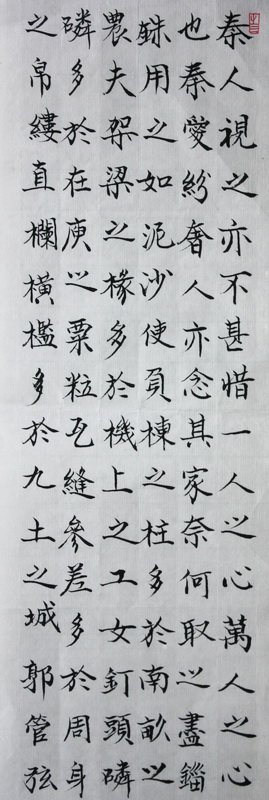 秦人視之亦不甚惜一人之心萬人之心
也秦愛紛奢人亦念其家奈何取之盡錙
銖用之如泥沙使負棟之柱多於南畝之
農夫架梁之椽多於機上之工女釘頭隣
隣多於在庾之粟粒瓦縫參差多於周身
之帛縷直欄橫檻多於九土之城郭管弦